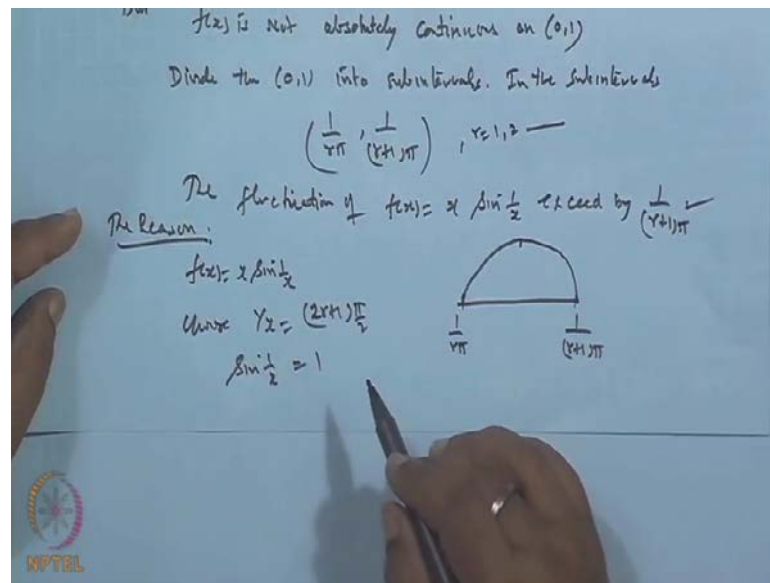 f(x) is not absolutely continuous on (0,1)
Divide the (0,1) into subintervals. In the subintervals
(1/rπ, 1/(r+1)π), r=1,2 —
The fluctuation of f(x)= x sin 1/x exceed by 1/(r+1)π ✓
The Reason.
f(x)= x sin 1/x
choose 1/x = (2r+1)π/2
sin 1/x = 1
1/rπ 1/(r+1)π
NPTEL